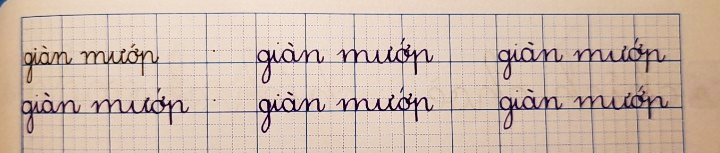 giàn mướp giàn mướp giàn mướp
giàn mướp giàn mướp giàn mướp